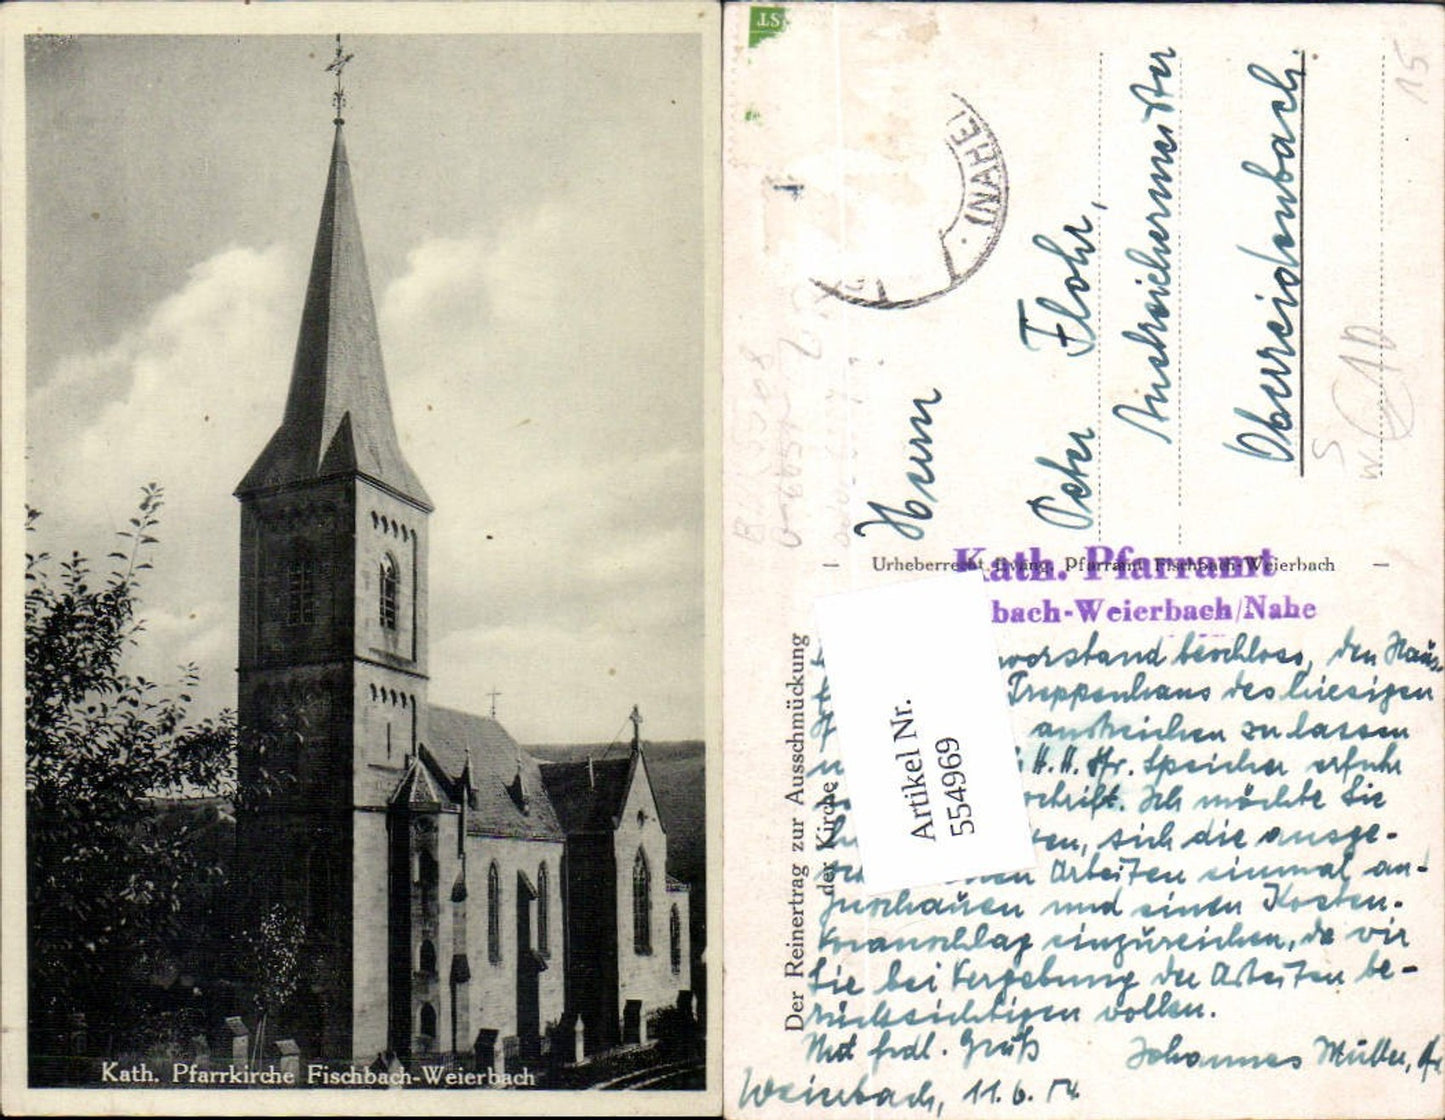 Kath. Pfarrkirche Fischbach-Weierbach
ST
(NAHE)
15
Herrn
Peter Flohr,
Anstreichermeister
Oberreidenbach.
Urheberrecht Evang. Pfarramt Fischbach-Weierbach
Kath. Pfarramt
bach-Weierbach/Nahe
Der Reinertrag zur Ausschmückung
der Kirche
Artikel Nr.
554969
vorstand beschloss, den Haus-
Treppenhaus des hiesigen
anstreichen zu lassen
H.H. Pfr. Speicher erfuhr
schrift. Ich möchte Sie
sich die ausge-
Arbeiten einmal an-
zuschauen und einen Kosten-
voranschlag einzureichen, da wir
Sie bei Vergebung der Arbeiten be-
rücksichtigen wollen.
Mit frdl. Gruß Johannes Müller,
Weierbach, 11.6.54